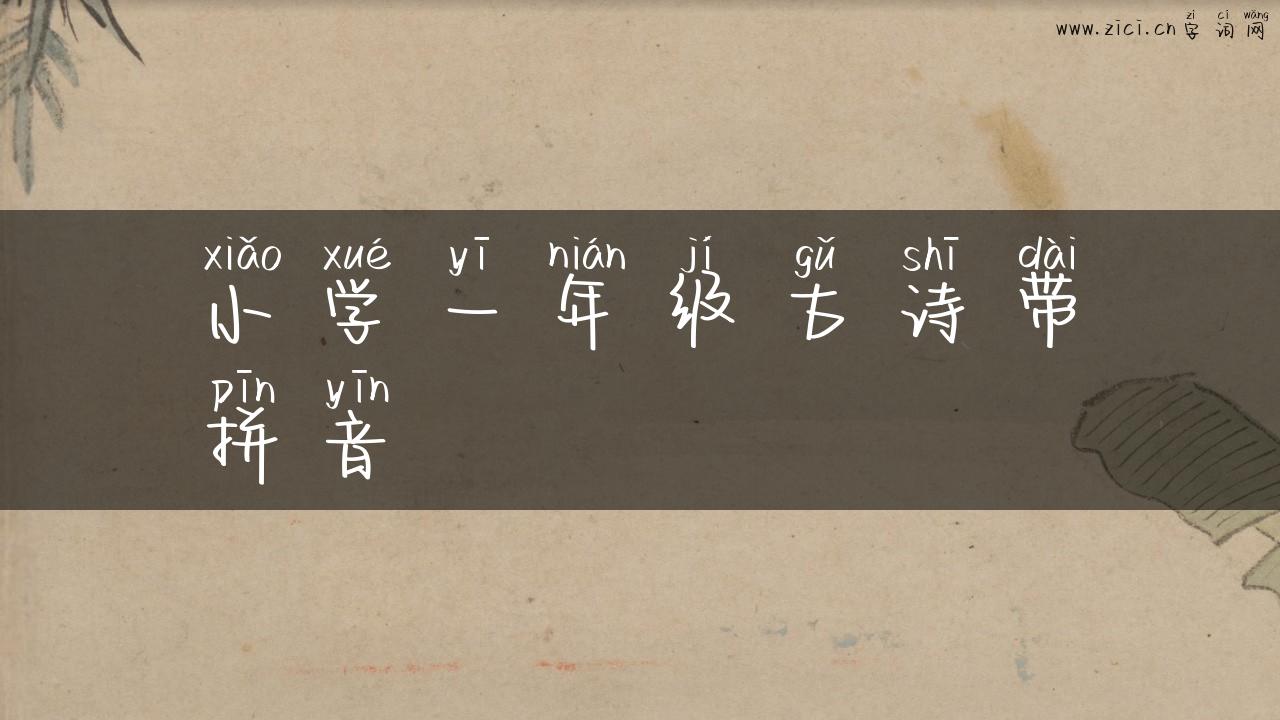 zì cí wǎng
www.zici.cn 字 词 网
xiǎo xué yī nián jí gǔ shī dài
小 学 一 年 级 古 诗 带
pīn yīn
拼 音